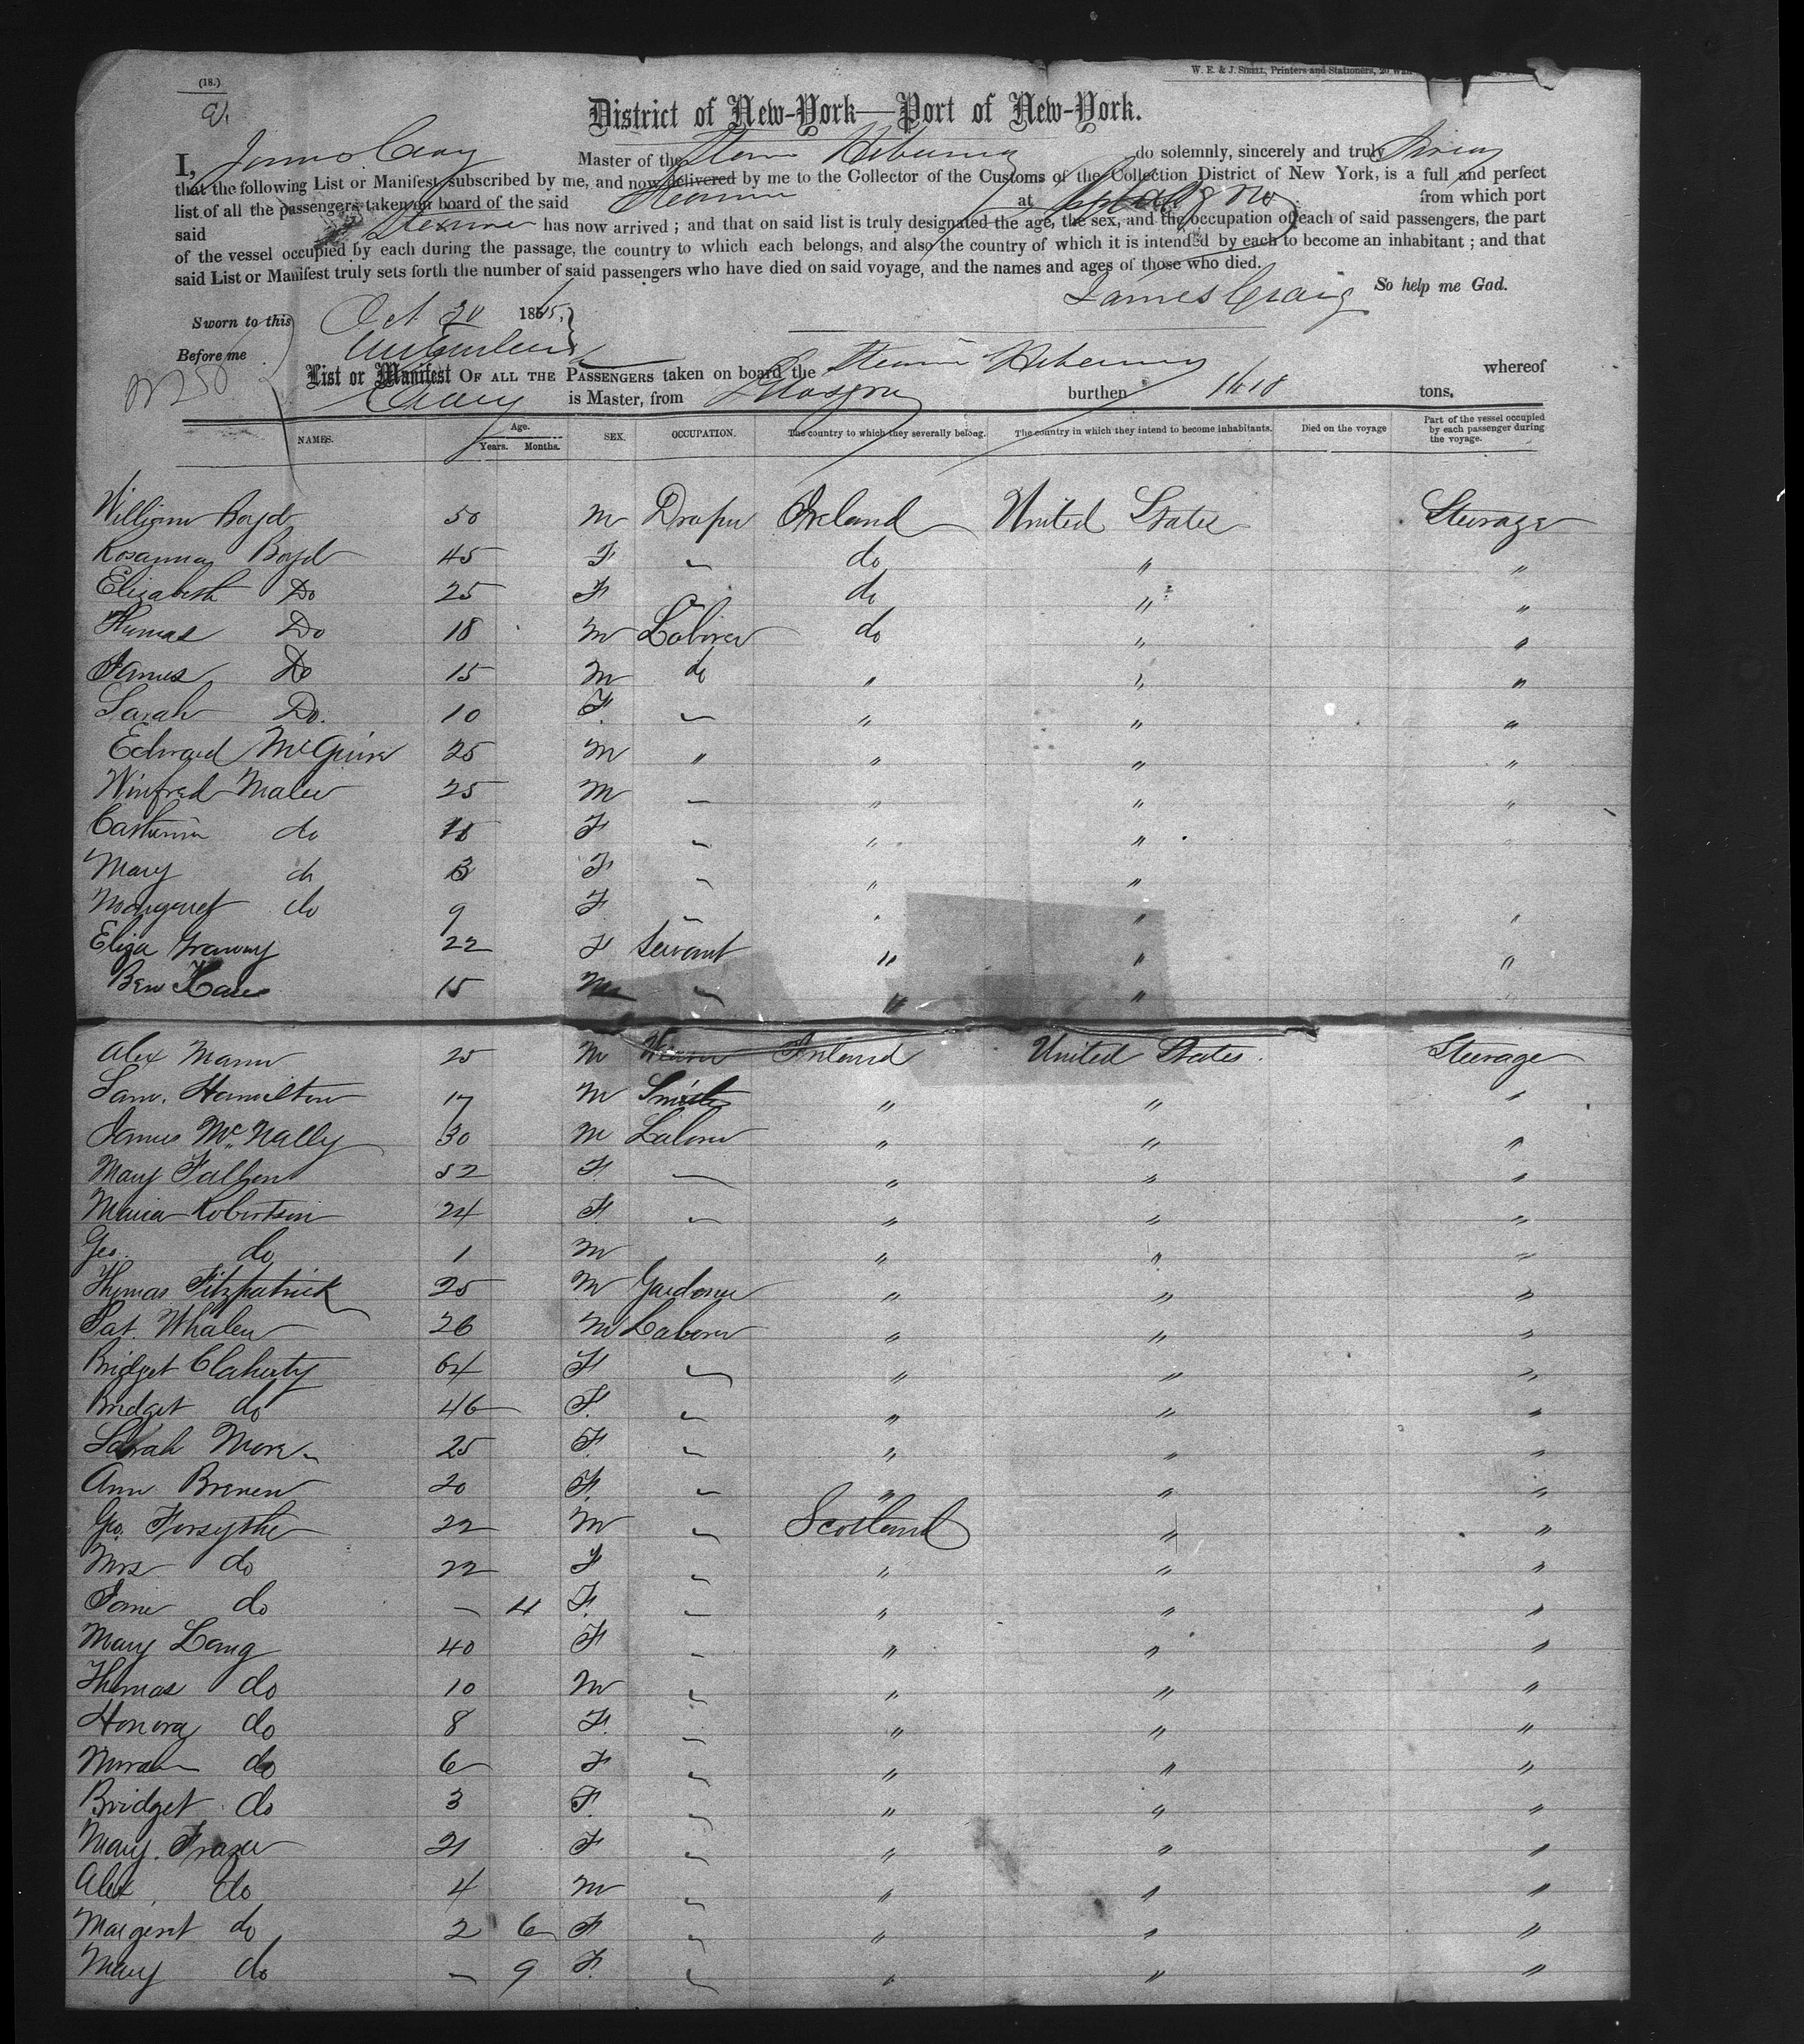 (18.)
W. E. & J. SIBELL, Printers and Stationers, 20 Wall
District of New-York—Port of New-York.
I, James Craig Master of the Steamer Hibernia do solemnly, sincerely and truly Swear
that the following List or Manifest subscribed by me, and now delivered by me to the Collector of the Customs of the Collection District of New York, is a full and perfect
list of all the passengers taken on board of the said Steamer at Glasgow from which port
said Steamer has now arrived ; and that on said list is truly designated the age, the sex, and the occupation of each of said passengers, the part
of the vessel occupied by each during the passage, the country to which each belongs, and also the country of which it is intended by each to become an inhabitant ; and that
said List or Manifest truly sets forth the number of said passengers who have died on said voyage, and the names and ages of those who died.
James Craig So help me God.
Sworn to this Oct 20 1865,
Before me
List or Manifest OF ALL THE PASSENGERS taken on board the Steamer Hibernia whereof
Craig is Master, from Glasgow burthen 1618 tons.
NAMES. Age. Years. Months. SEX. OCCUPATION. The country to which they severally belong. The country in which they intend to become inhabitants. Died on the voyage Part of the vessel occupied by each passenger during the voyage.
William Boyd 50 M Draper Ireland United States Steerage
Rosanna Boyd 45 F " do " "
Elizabeth Do 25 F do " "
Thomas Do 18 M Laborer do " "
James Do 15 M do " " "
Sarah Do. 10 F. " " " "
Edward McGuire 25 M " " " "
Winfred 25 M " " " "
Catherin do F " " "
Mary do 3 F " " "
Margaret do 9 F " " " "
Eliza 22 F Servant " " "
Ben 15 M " " " "
Alex Mann 25 M Ireland United States. Steerage
Sam. Hamilton 17 M Smith " " "
James McNally 30 M Laborer " " "
Mary Fallon 52 F. " " " "
Maria Robertson 24 F. " " " "
Geo. do 1 M " " "
Thomas Fitzpatrick 25 M Gardener " " "
Pat. Whalen 26 M Laborer " " "
Bridget Claherty 64 F " " " "
Bridget do 46 F. " " " "
Sarah More 25 F. " " " "
Ann Brenen 20 F. " " " "
Geo. Forsythe 22 M " Scotland " "
Mrs do 22 F " " " "
do 4 F. " " " "
Mary Lang 40 F " " " "
Thomas do 10 M " " " "
Honora do 8 F. " " " "
do 6 F " " " "
Bridget do 3 F. " " " "
Mary. Frazer 21 F " " " "
Alex do 4 M " " " "
Margeret do 2 6 F " " " "
Mary do 9 F. " " " "